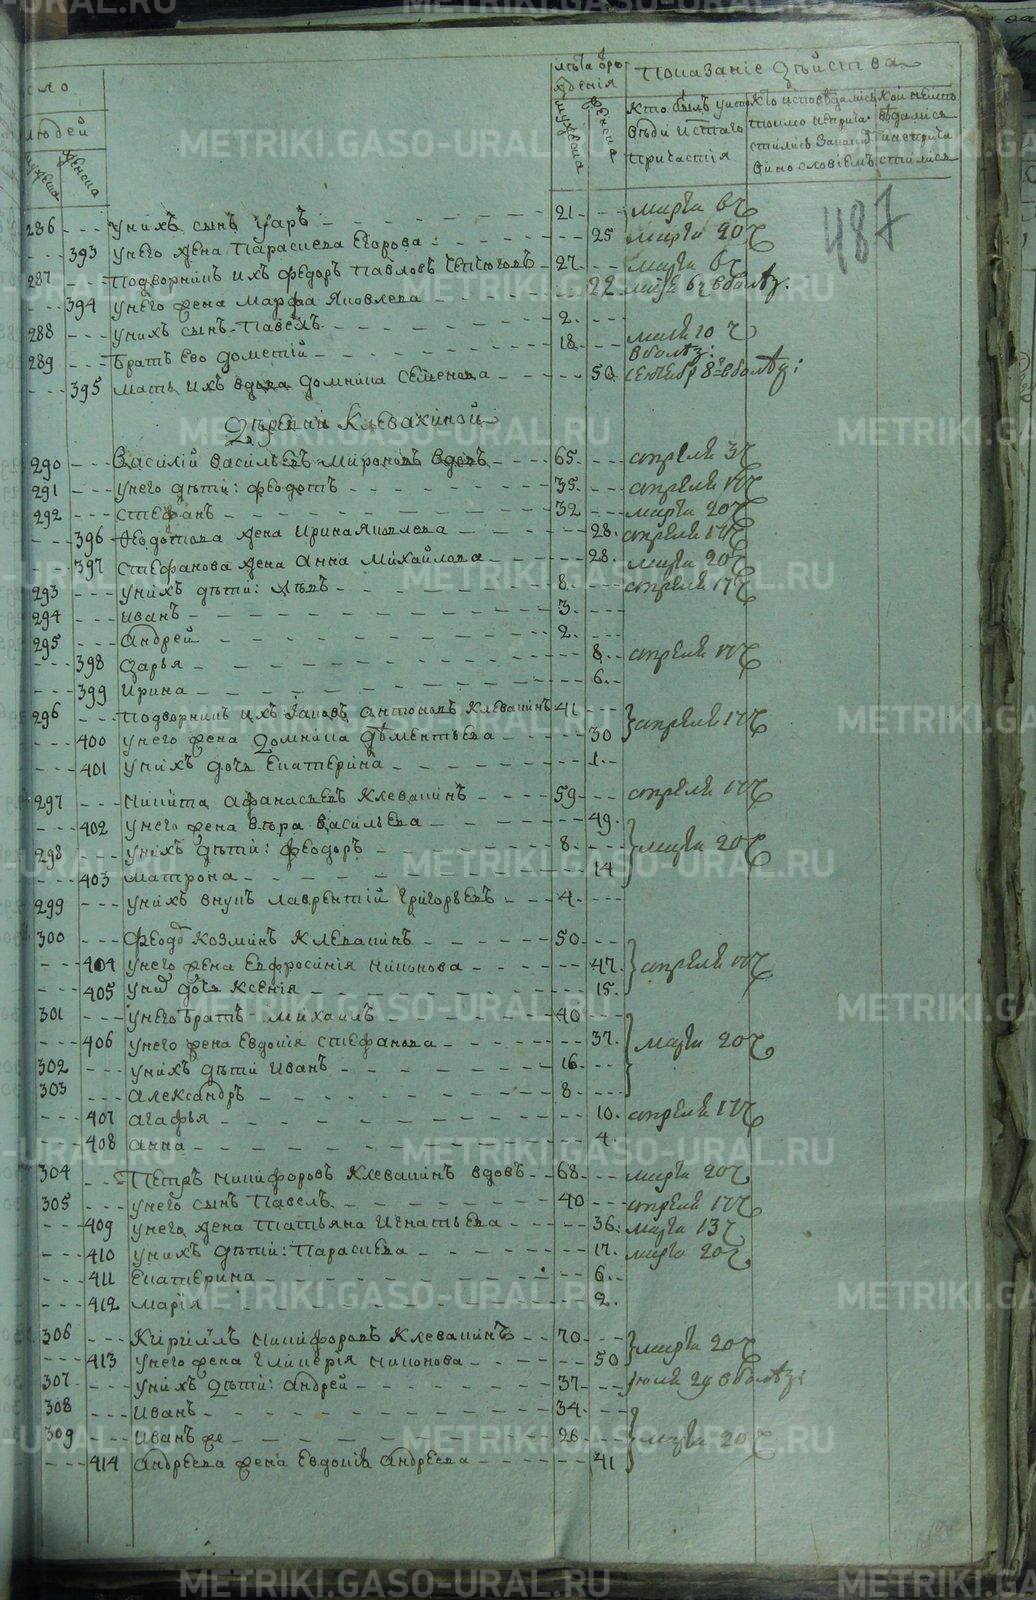 сло
людей
мужеска
женска
лѣта ѿро
жденія
мужеска
женска
Показаніе дѣйства
Кто былъ у испо
вѣди и стаго
причастія
Кто исповѣдались
токмо не прича
стились за каким
винословіемъ
Кои не испо
вѣдались
и не прича
стились
487
286 --- у нихъ сынъ 21 --- марта 6 ч
--- 393 у него жена Параскева Егорова --- 25 марта 20 ч
287 --- Подворникъ ихъ Федоръ Павловъ 27 --- марта 6 ч
--- 394 у него жена Марфа Яковлева --- 22 6 ч в болѣз:
288 --- у нихъ сынъ Павелъ 2 ---
289 --- братъ ево Дометій 18 --- 10 ч в болѣз:
--- 395 мать ихъ вдова Домника Семенова --- 50 сентебр 8 в болѣз:
Деревни Клевакиной
290 --- Василій Васильевъ Мироновъ вдовъ 65 --- апреля 3 ч
291 --- у него дѣти: Феодотъ 35 --- апреля 17 ч
292 --- Стефанъ 32 --- марта 20 ч
--- 396 Феодотова жена Ирина Яковлева --- 28 апреля 17 ч
--- 397 Стефанова жена Анна Михайлова --- 28 марта 20 ч
293 --- у нихъ дѣти: Левъ 8 --- апреля 17 ч
294 --- Иванъ 3 ---
295 --- Андрей 2 ---
--- 398 Дарья --- 8 апреля 17 ч
--- 399 Ирина --- 6
296 --- Подворникъ ихъ Іаковъ Антоновъ Клевакинъ 41 --- апреля 17 ч
--- 400 у него жена Домника Дементьева --- 30
--- 401 у нихъ дочь Екатерина --- 1
297 --- Никита Афанасьевъ Клевакинъ 59 --- апреля 17 ч
--- 402 у него жена Вѣра Васильева --- 49
298 --- у нихъ дѣти: Феодоръ 8 --- марта 20 ч
--- 403 Матрона --- 14
299 --- у нихъ внукъ Лаврентій Григорьевъ 4 ---
300 --- Феодо Козминъ Клевакинъ 50 ---
--- 404 у него жена Евфросинія Никонова --- 47 апреля 17 ч
--- 405 у них дочь Ксенія --- 15
301 --- у него братъ Михаилъ 40 ---
--- 406 у него жена Евдокія Стефанова --- 37 марта 20 ч
302 --- у нихъ дѣти Иванъ 16 ---
303 --- Александръ 8 ---
--- 407 Агафья --- 10 апреля 17 ч
--- 408 Анна --- 4
304 --- Петръ Никифоровъ Клевакинъ вдовъ 68 --- марта 20 ч
305 --- у него сынъ Павелъ 40 --- апреля 17 ч
--- 409 у него жена Татьяна Игнатьева --- 36 марта 13 ч
--- 410 у нихъ дѣти: Параскева --- 17 марта 20 ч
--- 411 Екатерина --- 6
--- 412 Марія --- 2
306 --- Кирилъ Никифоровъ Клевакинъ 70 --- марта 20 ч
--- 413 у него жена Гликерія Никонова --- 50
307 --- у нихъ дѣти: Андрей 37 --- июля 29 в болѣз:
308 --- Иванъ 34 ---
309 --- Иванъ же 26 --- марта 20 ч
--- 414 Андреева жена Евдокія Андреева --- 41
METRIKI.GASO-URAL.RU